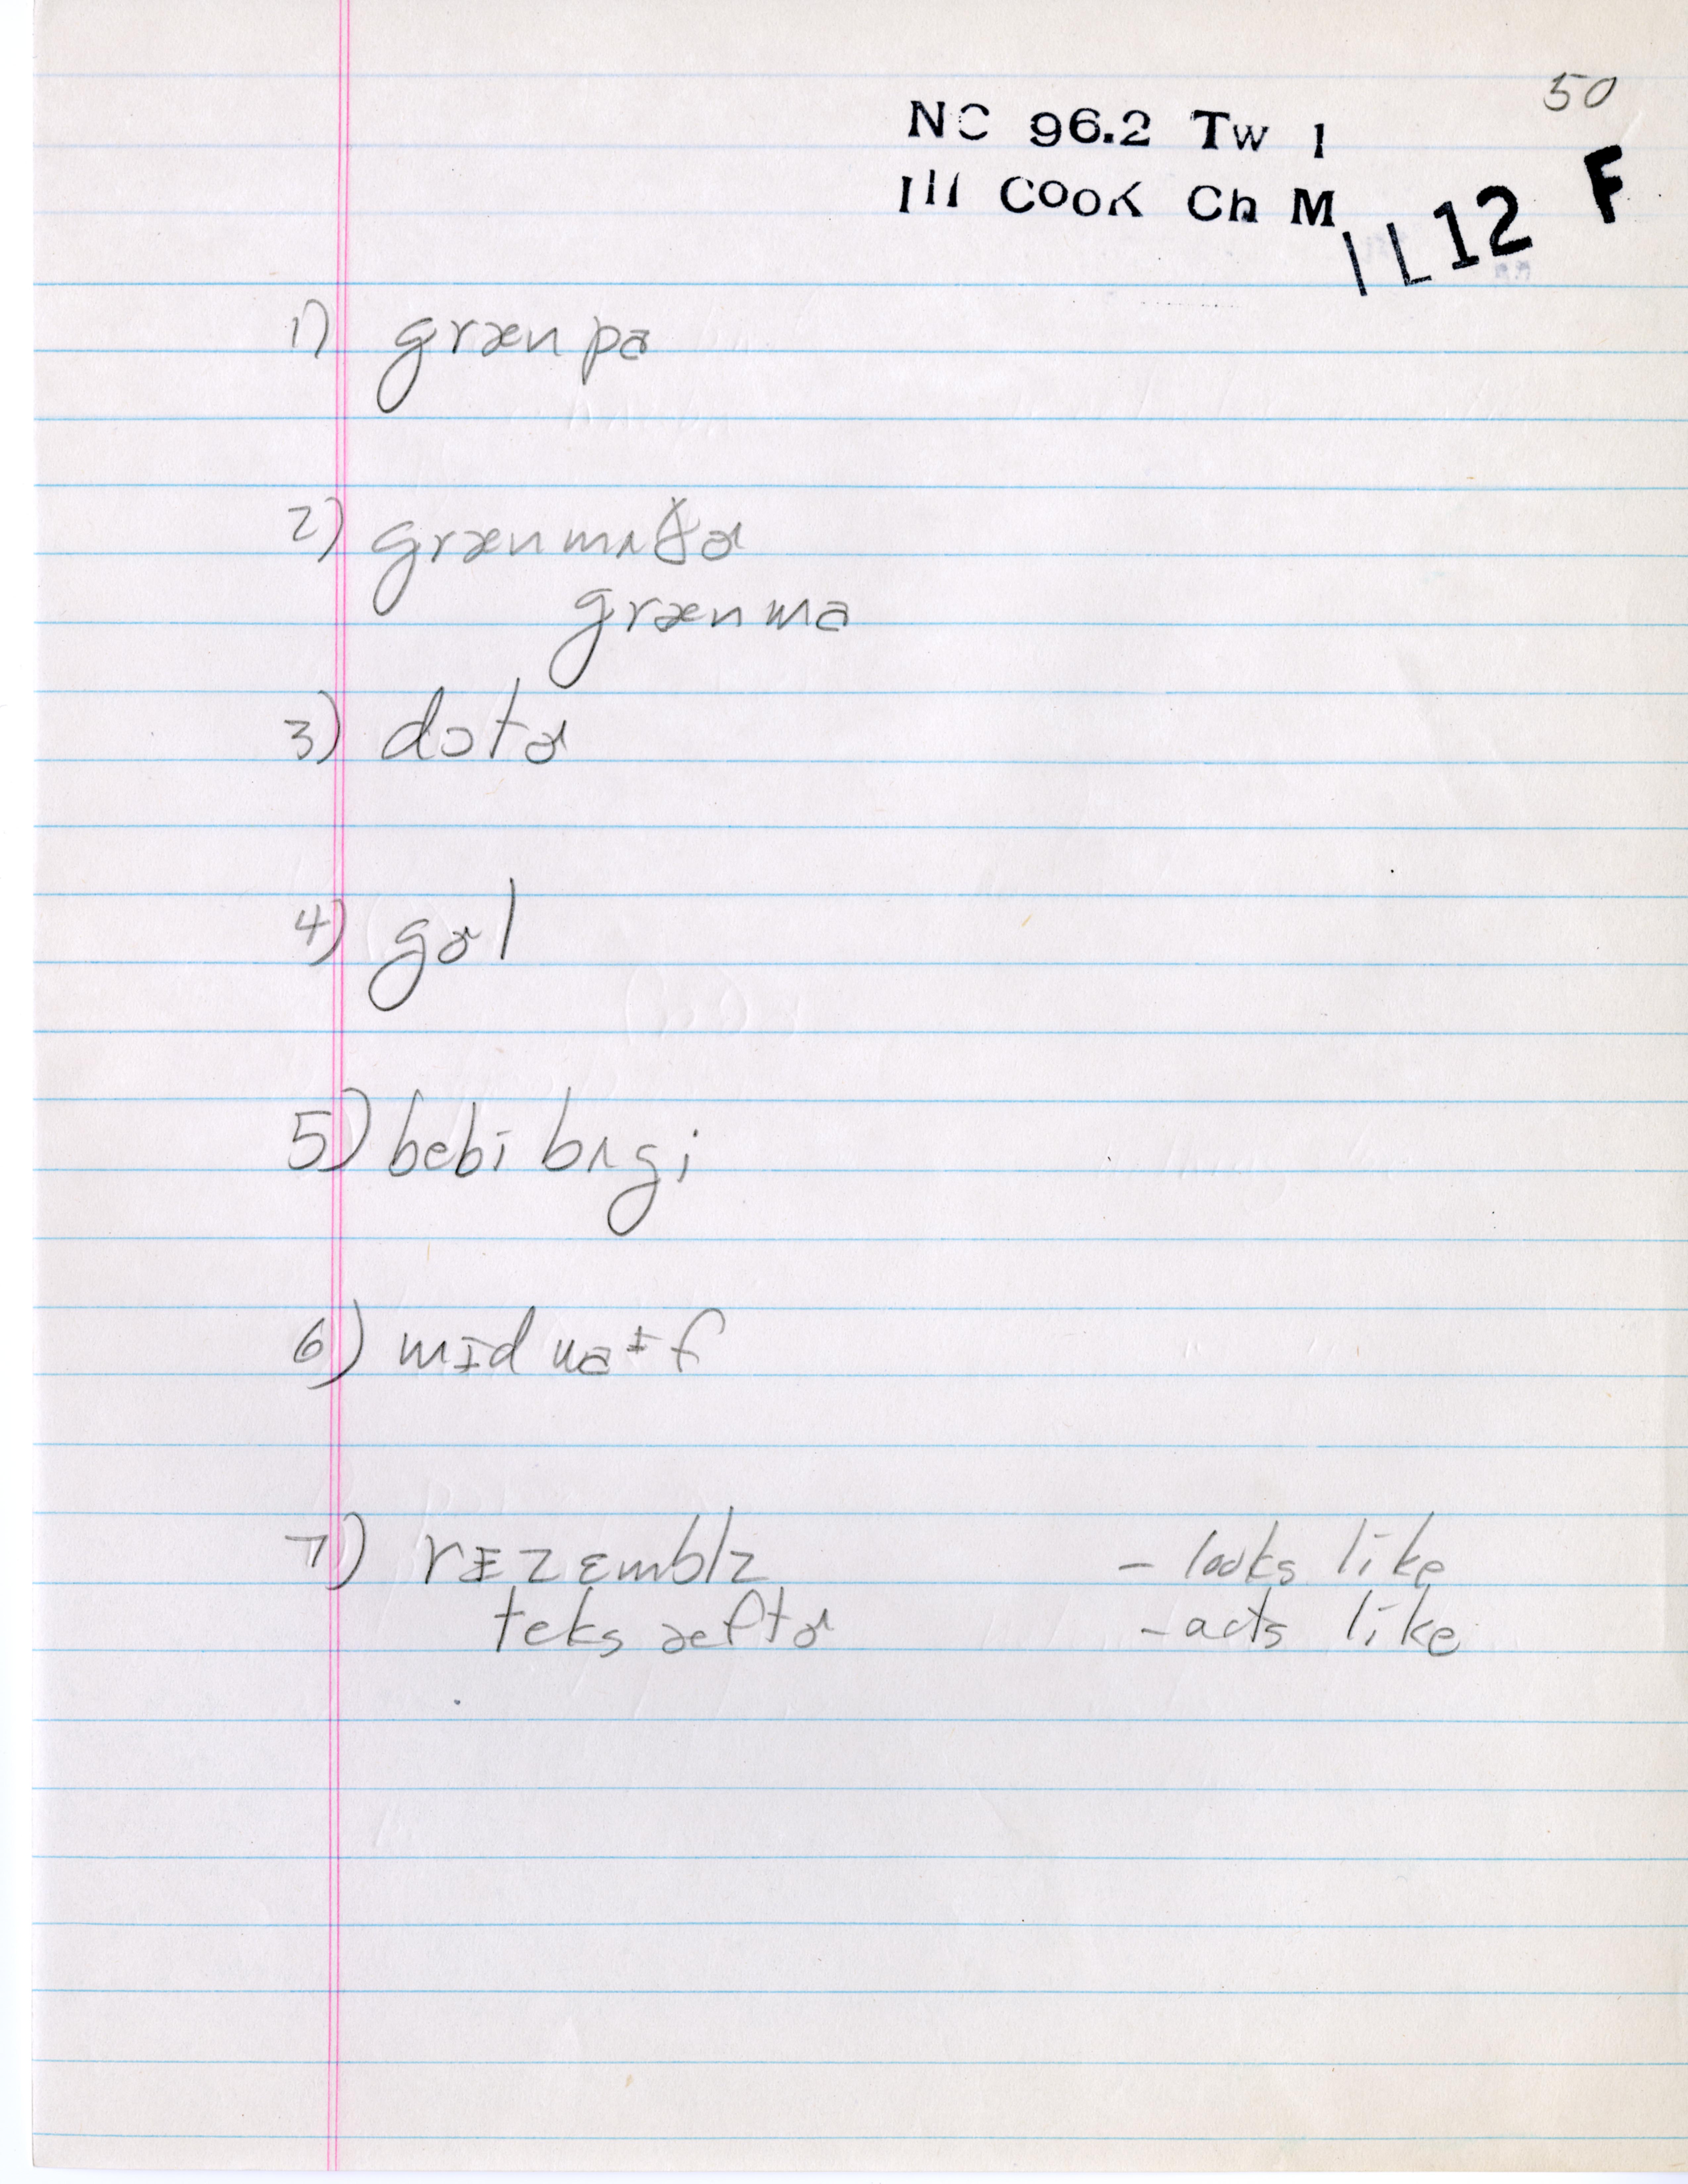 50
NC 96.2 Tw 1
Ill Cook Ch M
IL12 F
1) grænpɑ
2) grænmʌðɚ
grænmɑ
3) dɔtɚ
4) gɚl
5) bebi bʌgi
6) mɪdwɑɪf
7) rɪzɛmblz - looks like
teks æftɚ - acts like